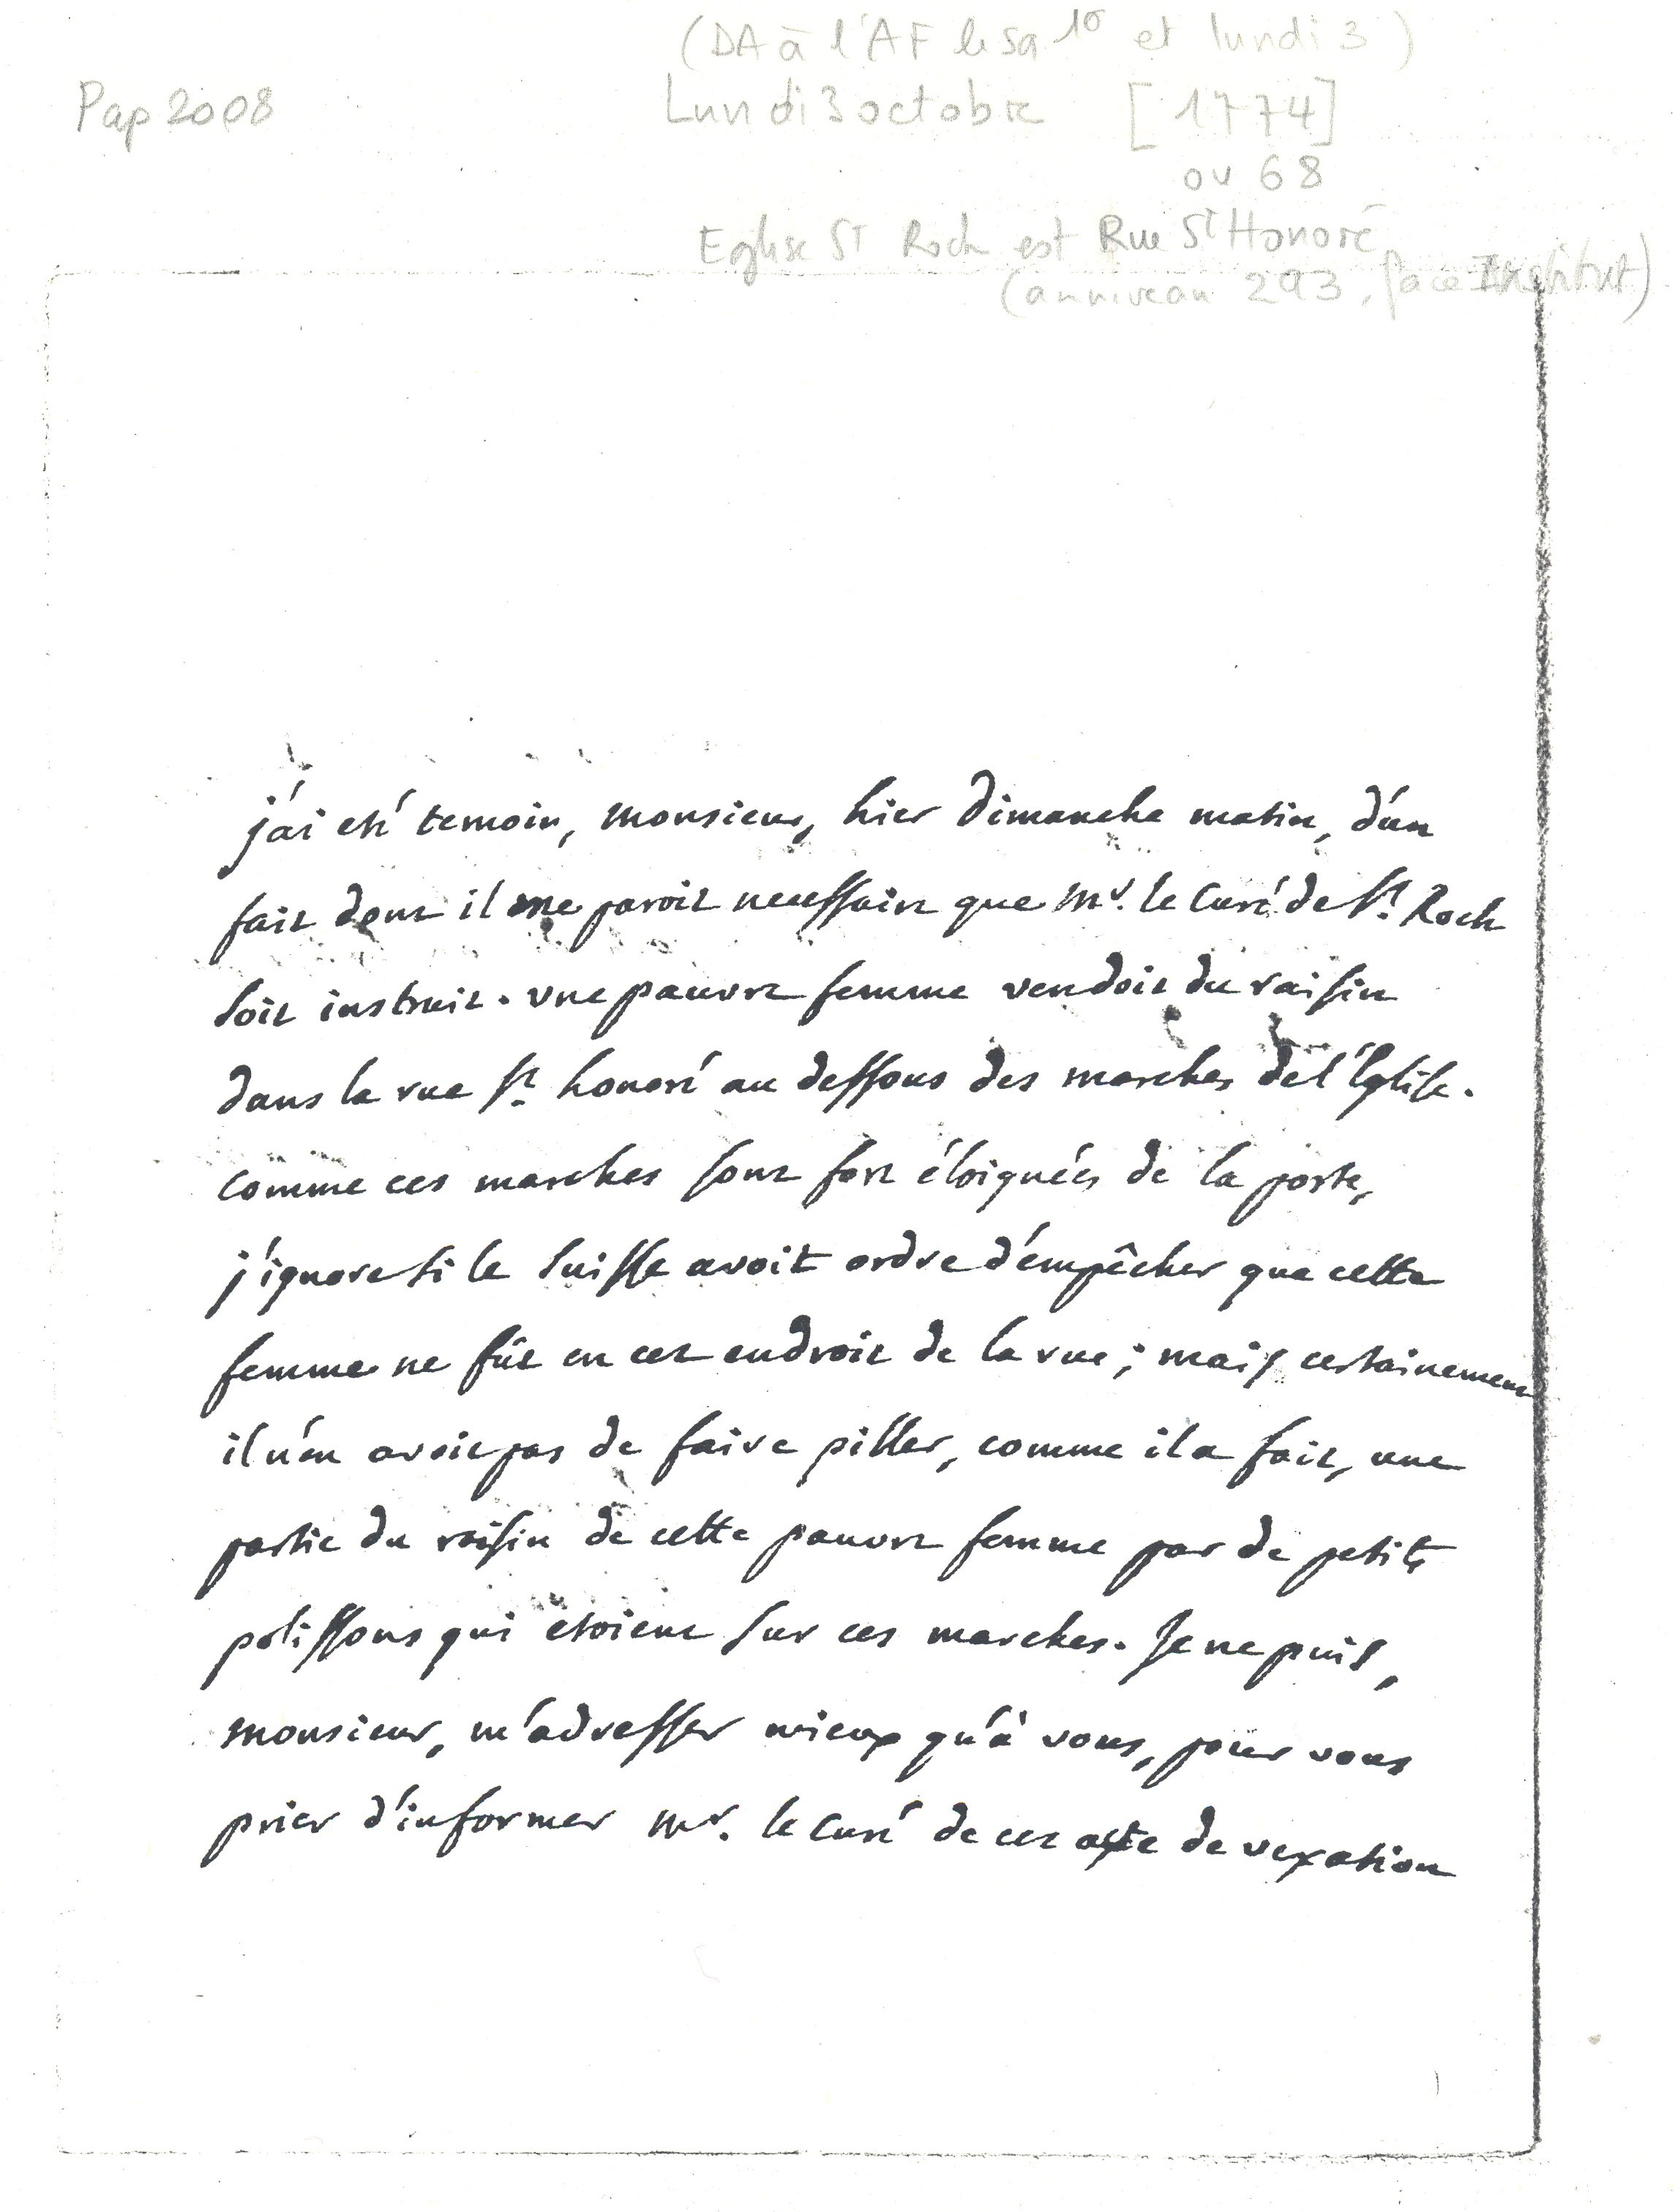 (DA à l'AF le sa 1er et lundi 3)
Pap 2008
Lundi 3 octobre [1774]
ou 68
Eglise St Roch est Rue St Honoré
(au niveau 293, face Institut)
j'ai eté temoin, monsieur, hier dimanche matin, d'un
fait dont il me paroit necessaire que Mr. le Curé de St. Roch
soit instruit. une pauvre femme vendoit du raisin
dans la rue St. honoré au dessous des marches de l'Eglise.
comme ces marches sont fort éloignées de la porte,
j'ignore si le suisse avoit ordre d'empêcher que cette
femme ne fût en cet endroit de la rue ; mais certainement
il n'en avoit pas de faire piller, comme il a fait, une
partie du raisin de cette pauvre femme par de petits
polissons qui etoient sur ces marches. Je ne puis,
monsieur, m'adresser mieux qu'à vous, pour vous
prier d'informer Mr. le Curé de cet acte de vexation